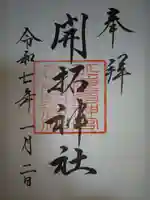 奉拝
開拓神社
令和七年一月二日